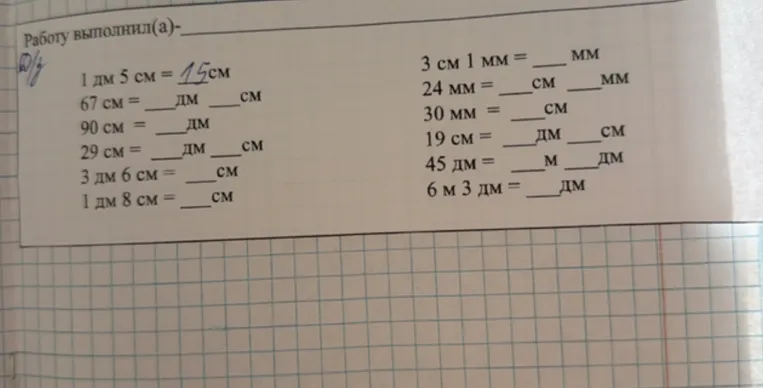 Работу выполнил(а)-
Д/з
1 дм 5 см = 15см
67 см = ___дм ___см
90 см = ___дм
29 см = ___дм ___см
3 дм 6 см = ___см
1 дм 8 см = ___см
3 см 1 мм = ___ мм
24 мм = ___см ___мм
30 мм = ___см
19 см = ___дм ___см
45 дм = ___м ___дм
6 м 3 дм = ___дм